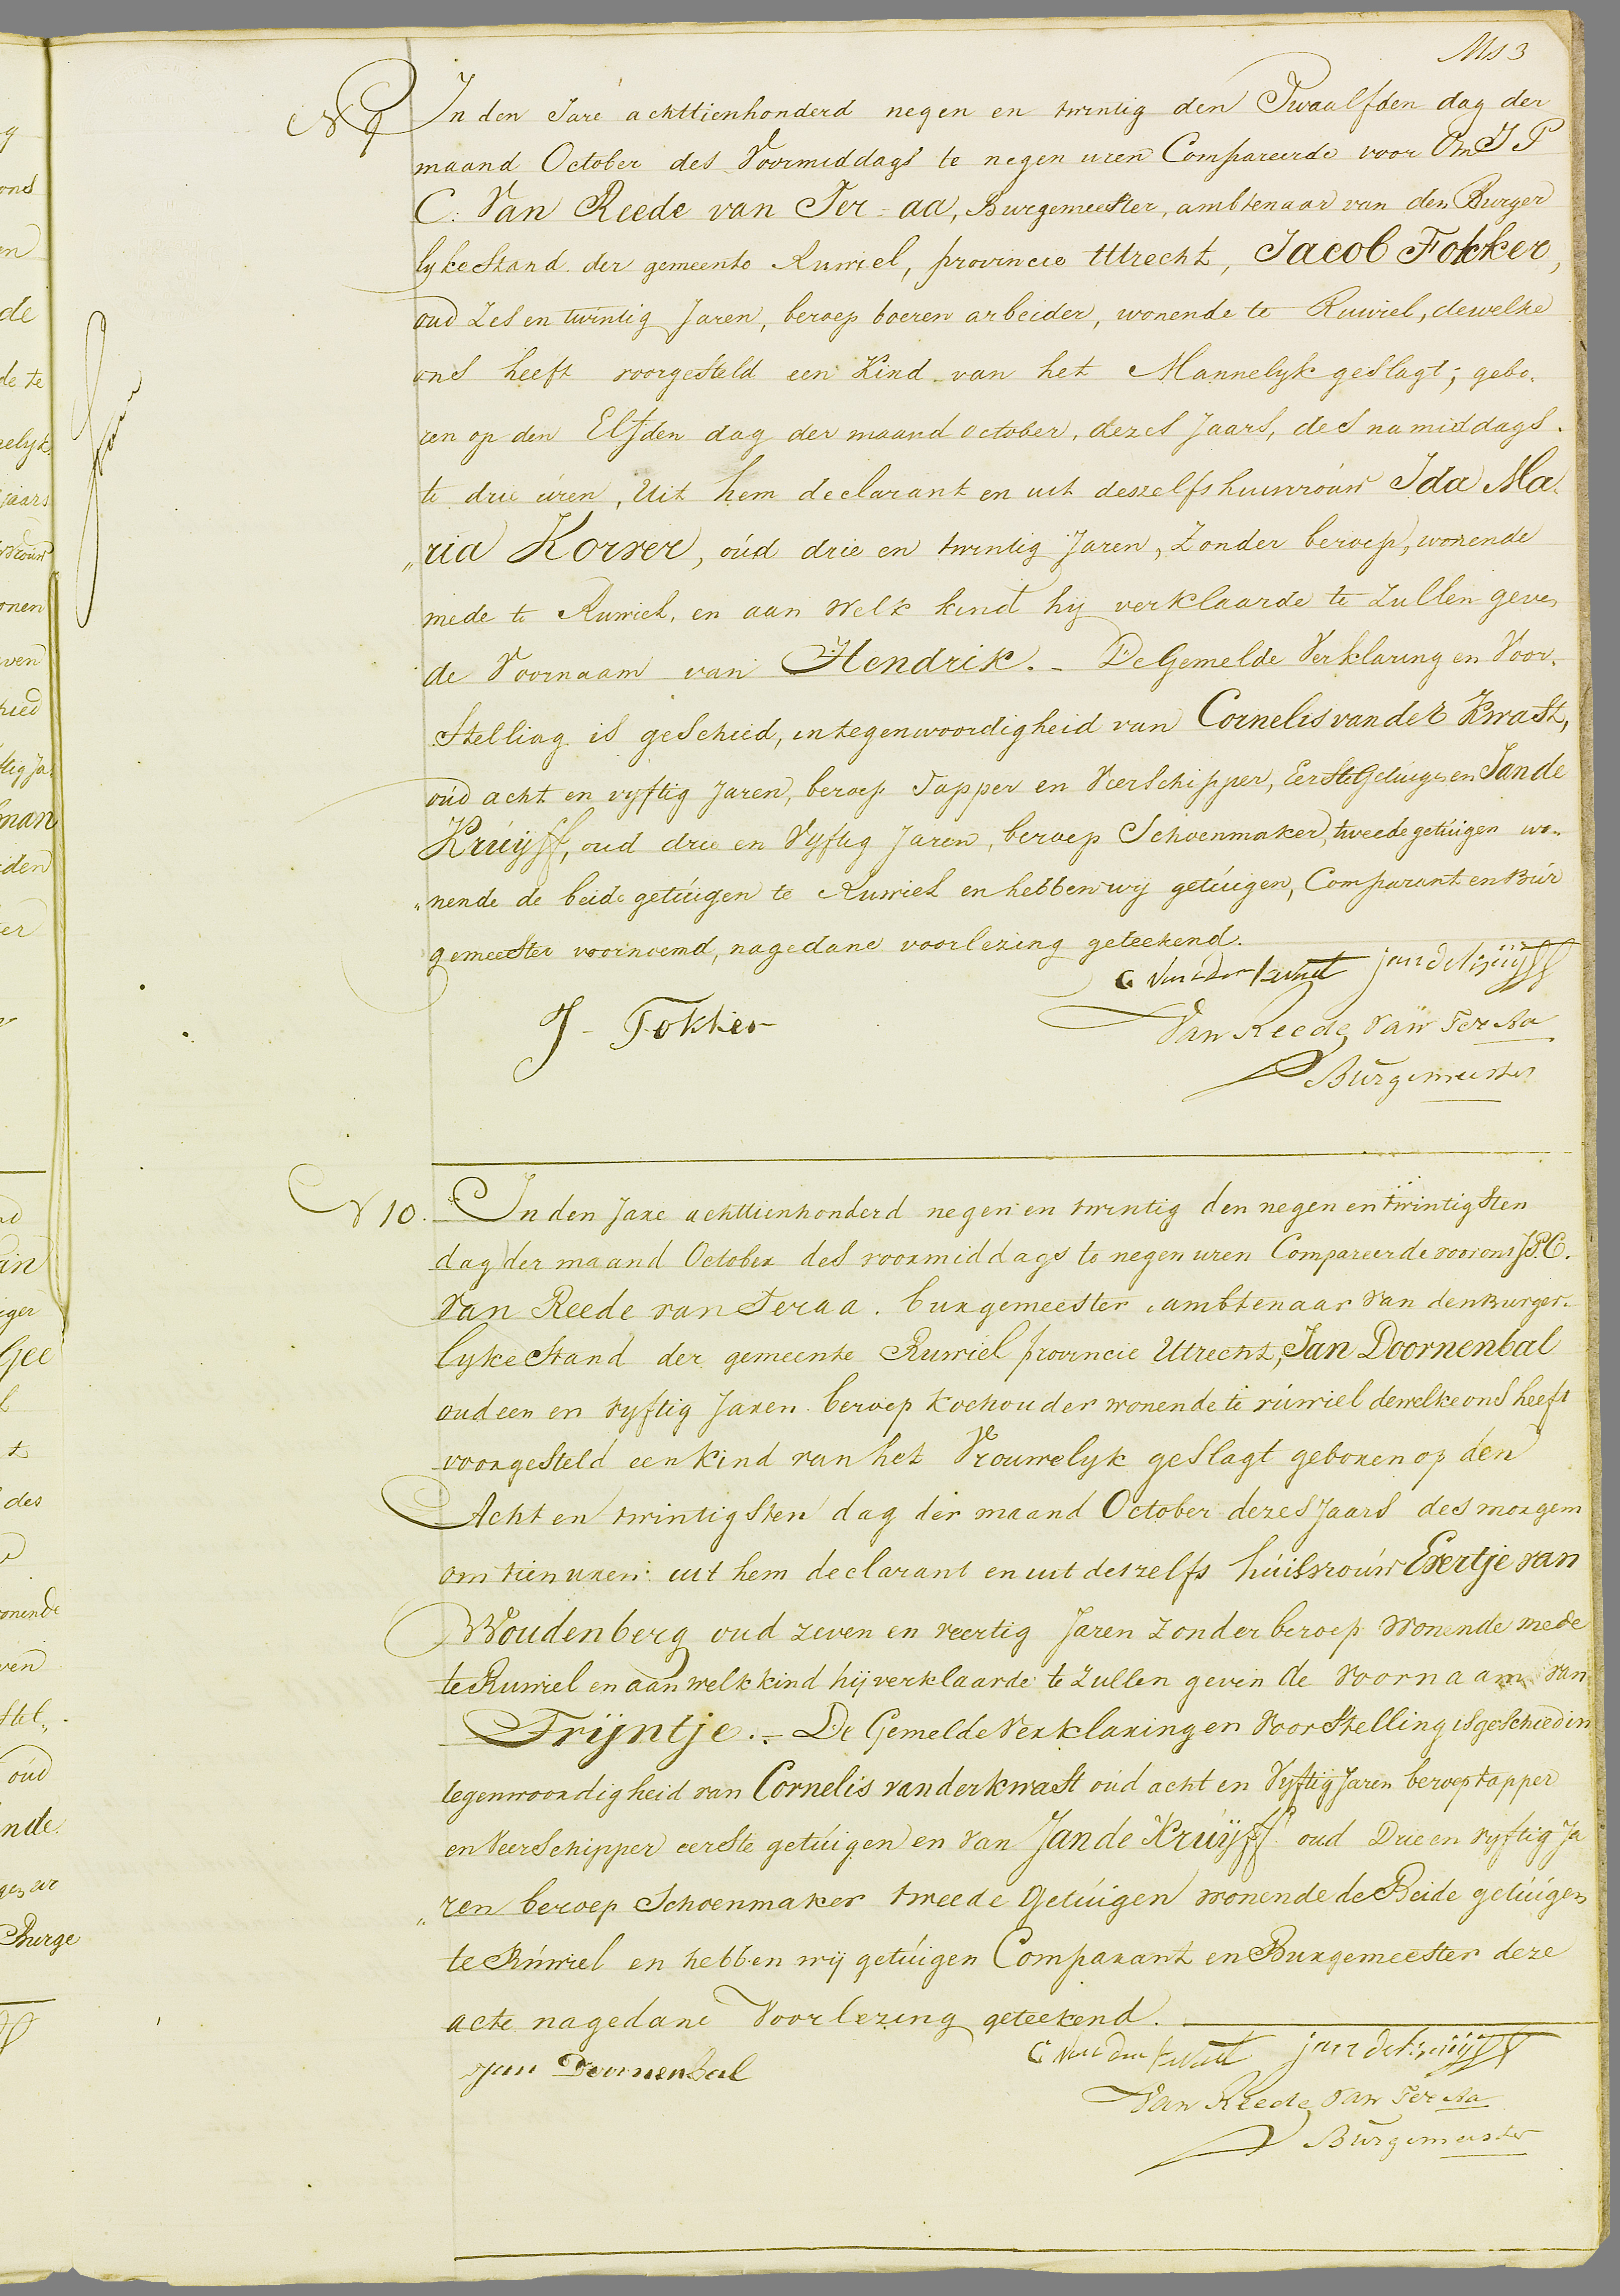 Ms 3
N 9
In den Jare achttienhonderd negen en twintig den Twaalfden dag der
maand October des Voormiddags te negen uren Compareerde voor Ons J P
C. Van Reede van Ter=aa, Burgemeester, ambtenaar van den Burger
lyke Stand der gemeente Ruwiel, provincie Utrecht, Jacob Fokker,
oud Zes en twintig Jaren, beroep boeren arbeider, wonende te Ruwiel, dewelke
ons heeft voorgesteld een Kind van het Mannelyk geslagt; gebo.
ren op den Elfden dag der maand october, dezes Jaars, des namiddags.
te drie uren, Uit hem declarant en uit deszelfs huisvrouw Ida Ma.
„ria Korver, oud drie en twintig Jaren, Zonder beroep, wonende
mede te Ruwiel, en aan welk kind hij verklaarde te Zullen geven
de Voornaam van Hendrik. _ De Gemelde Verklaring en Voor.
Stelling is geschied, in tegenwoordigheid van Cornelis van der Kwast,
oud acht en vyftig Jaren, beroep Tapper en Veerschipper, Eerste Getuigen en Jan de
Kruyff, oud drie en Vyftig Jaren, beroep Schoenmaker, tweede getuigen wo„
„nende de beide getuigen te Ruwiel en hebben wij getuigen, Comparant en Bur
gemeester voornoemd, nagedane voorlezing geteekend.
C van der kwast jan de kruijff
J - Fokker
Van Reede van Ter Aa
Burgemeester
N 10.
In den Jare achttienhonderd negen en twintig den negen en twintigsten
dag der maand October des voormiddags te negen uren Compareerde voor ons J.P.C.
Van Reede van Ter aa. burgemeester, ambtenaar van den Burger.
lyke Stand der gemeente Ruwiel provincie Utrecht, Jan Doornenbal
oud een en vyftig Jaren beroep Koehouder wonende te ruwiel dewelke ons heeft
voorgesteld een kind van het Vrouwelyk geslagt geboren op den
Acht en twintigsten dag der maand October dezes Jaars des morgens
om tien uren uit hem declarant en uit deszelfs huisvrouw Evertje van
Woudenberg oud zeven en veertig Jaren Zonder beroep Wonende mede
te Ruwiel en aan welk kind hij verklaarde te Zullen geven de Voornaam van
Trijntje. _ De Gemelde Verklaring en Voorstelling is geschied in
tegenwoordigheid van Cornelis van der kwast oud acht en Vyftig Jaren beroep tapper
en Veerschipper eerste getuigen en van Jan de Kruyff oud Drie en vyftig Ja
„ren beroep Schoenmaker tweede Getuigen wonende de Beide getuigen
te Ruwiel en hebben wij getuigen Comparant en Burgemeester deze
acte nagedane Voorlezing geteekend.
C van der kwast jan de kruijff
Jan Doornenbal
Van Reede van Ter Aa
Burgemeester